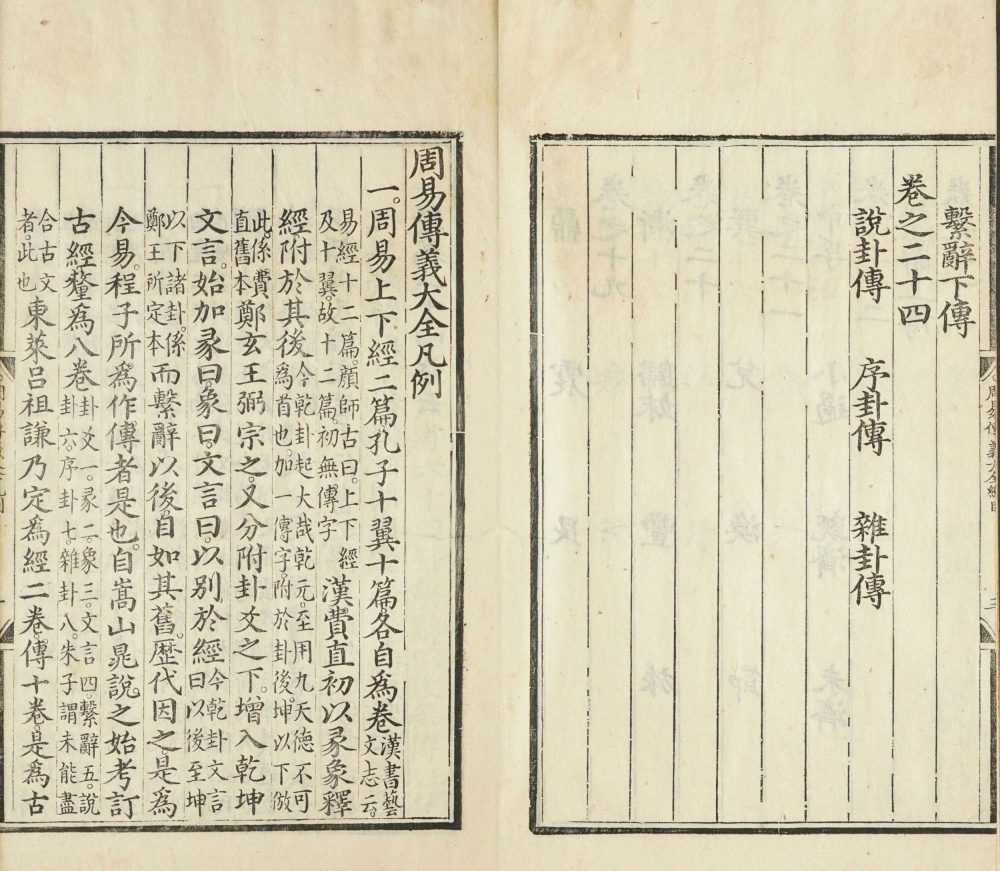 繫辭下傳
卷之二十四
說卦傳 序卦傳 雜卦傳
周易傳義大全凡例
一。周易上下經二篇。孔子十翼十篇。各自爲卷。漢書藝文志云。
易經十二篇。顏師古曰。上下經及十翼。故十二篇。初無傳字漢費直初以彖象釋
經附於其後。今乾卦起大哉乾元。至用九天德不可爲首也。加一傳字。附於卦後。坤以下倣
此。係費直舊本鄭玄王弼宗之。又分附卦爻之下。增入乾坤
文言。始加彖曰。象曰。文言曰。以别於經。今乾卦文言曰以後至坤
以下諸卦。係鄭王所定本而繫辭以後。自如其舊。歷代因之。是爲
今易。程子所爲作傳者是也。自嵩山晁說之始考訂
古經。釐爲八卷。卦爻一。彖二。象三。文言四。繫辭五。說卦六。序卦七。雜卦八。朱子謂未能盡
合古文者。此也東萊呂祖謙乃定爲經二卷。傳十卷。是爲古